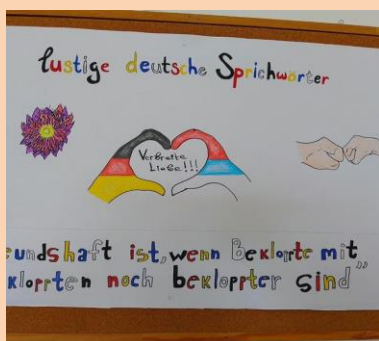 lustige deutsche Sprichwörter
Verbreite
Liebe!!!
eundshaft ist, wenn Bekloppte mit
kloppten noch bekloppter sind"